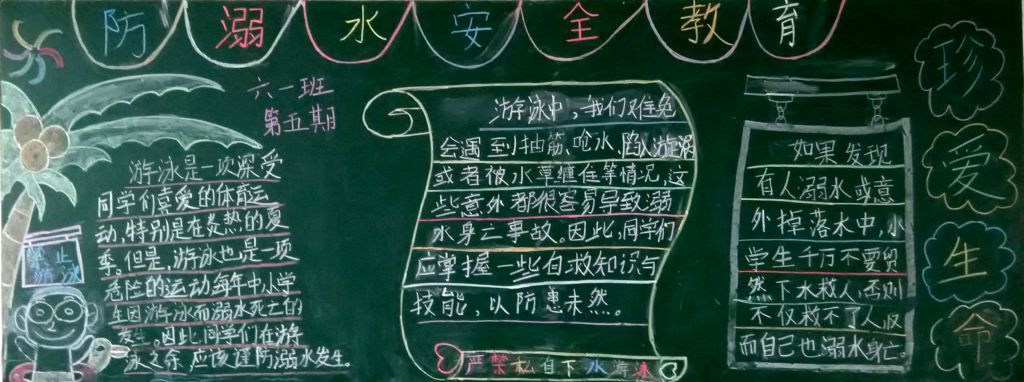 防溺水安全教育
六一班
第五期
游泳是一项深受
同学们喜爱的体育运
动,特别是在炎热的夏
季。但是,游泳也是一项
危险的运动每年中小学
生因游泳而溺水死亡的
发生。因此同学们在游
泳之余,应该谨防溺水发生。
禁止
游泳
游泳中,我们难免
会遇到抽筋、呛水、陷入漩涡
或者被水草缠住等情况,这
些意外都很容易导致溺
水身亡事故。因此,同学们
应掌握一些自救知识与
技能,以防患未然。
严禁私自下水游泳
如果发现
有人溺水或意
外掉落水中,小
学生千万不要贸
然下水救人,否则
不仅救不了人反
而自己也溺水身亡。
珍爱生命